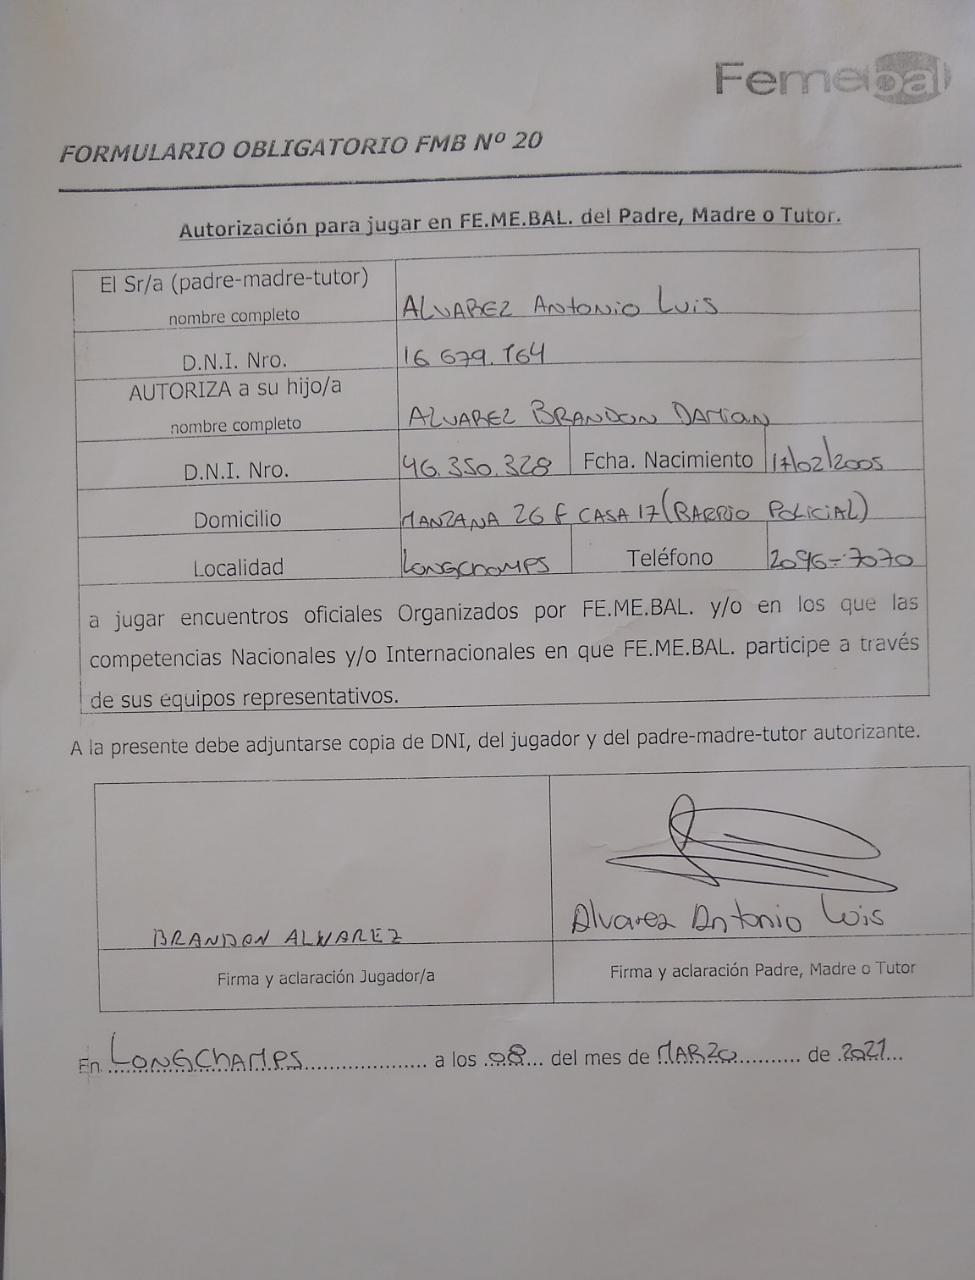 Femebal
FORMULARIO OBLIGATORIO FMB Nº 20
Autorización para jugar en FE.ME.BAL. del Padre, Madre o Tutor.
El Sr/a (padre-madre-tutor)
nombre completo
ALVAREZ Antonio Luis
D.N.I. Nro.
16 679.164
AUTORIZA a su hijo/a
nombre completo
ALVAREZ BRANDON DAMIAN
D.N.I. Nro.
46.350.328
Fcha. Nacimiento
17/02/2005
Domicilio
MANZANA 26 F CASA 17 (BARRIO POLICIAL)
Localidad
LONGCHAMPS
Teléfono
2096-7070
a jugar encuentros oficiales Organizados por FE.ME.BAL. y/o en los que las
competencias Nacionales y/o Internacionales en que FE.ME.BAL. participe a través
de sus equipos representativos.
A la presente debe adjuntarse copia de DNI, del jugador y del padre-madre-tutor autorizante.
BRANDON ALVAREZ
Alvarez Antonio Luis
Firma y aclaración Jugador/a
Firma y aclaración Padre, Madre o Tutor
En LONGCHAMPS a los 08 del mes de MARZO de 2021